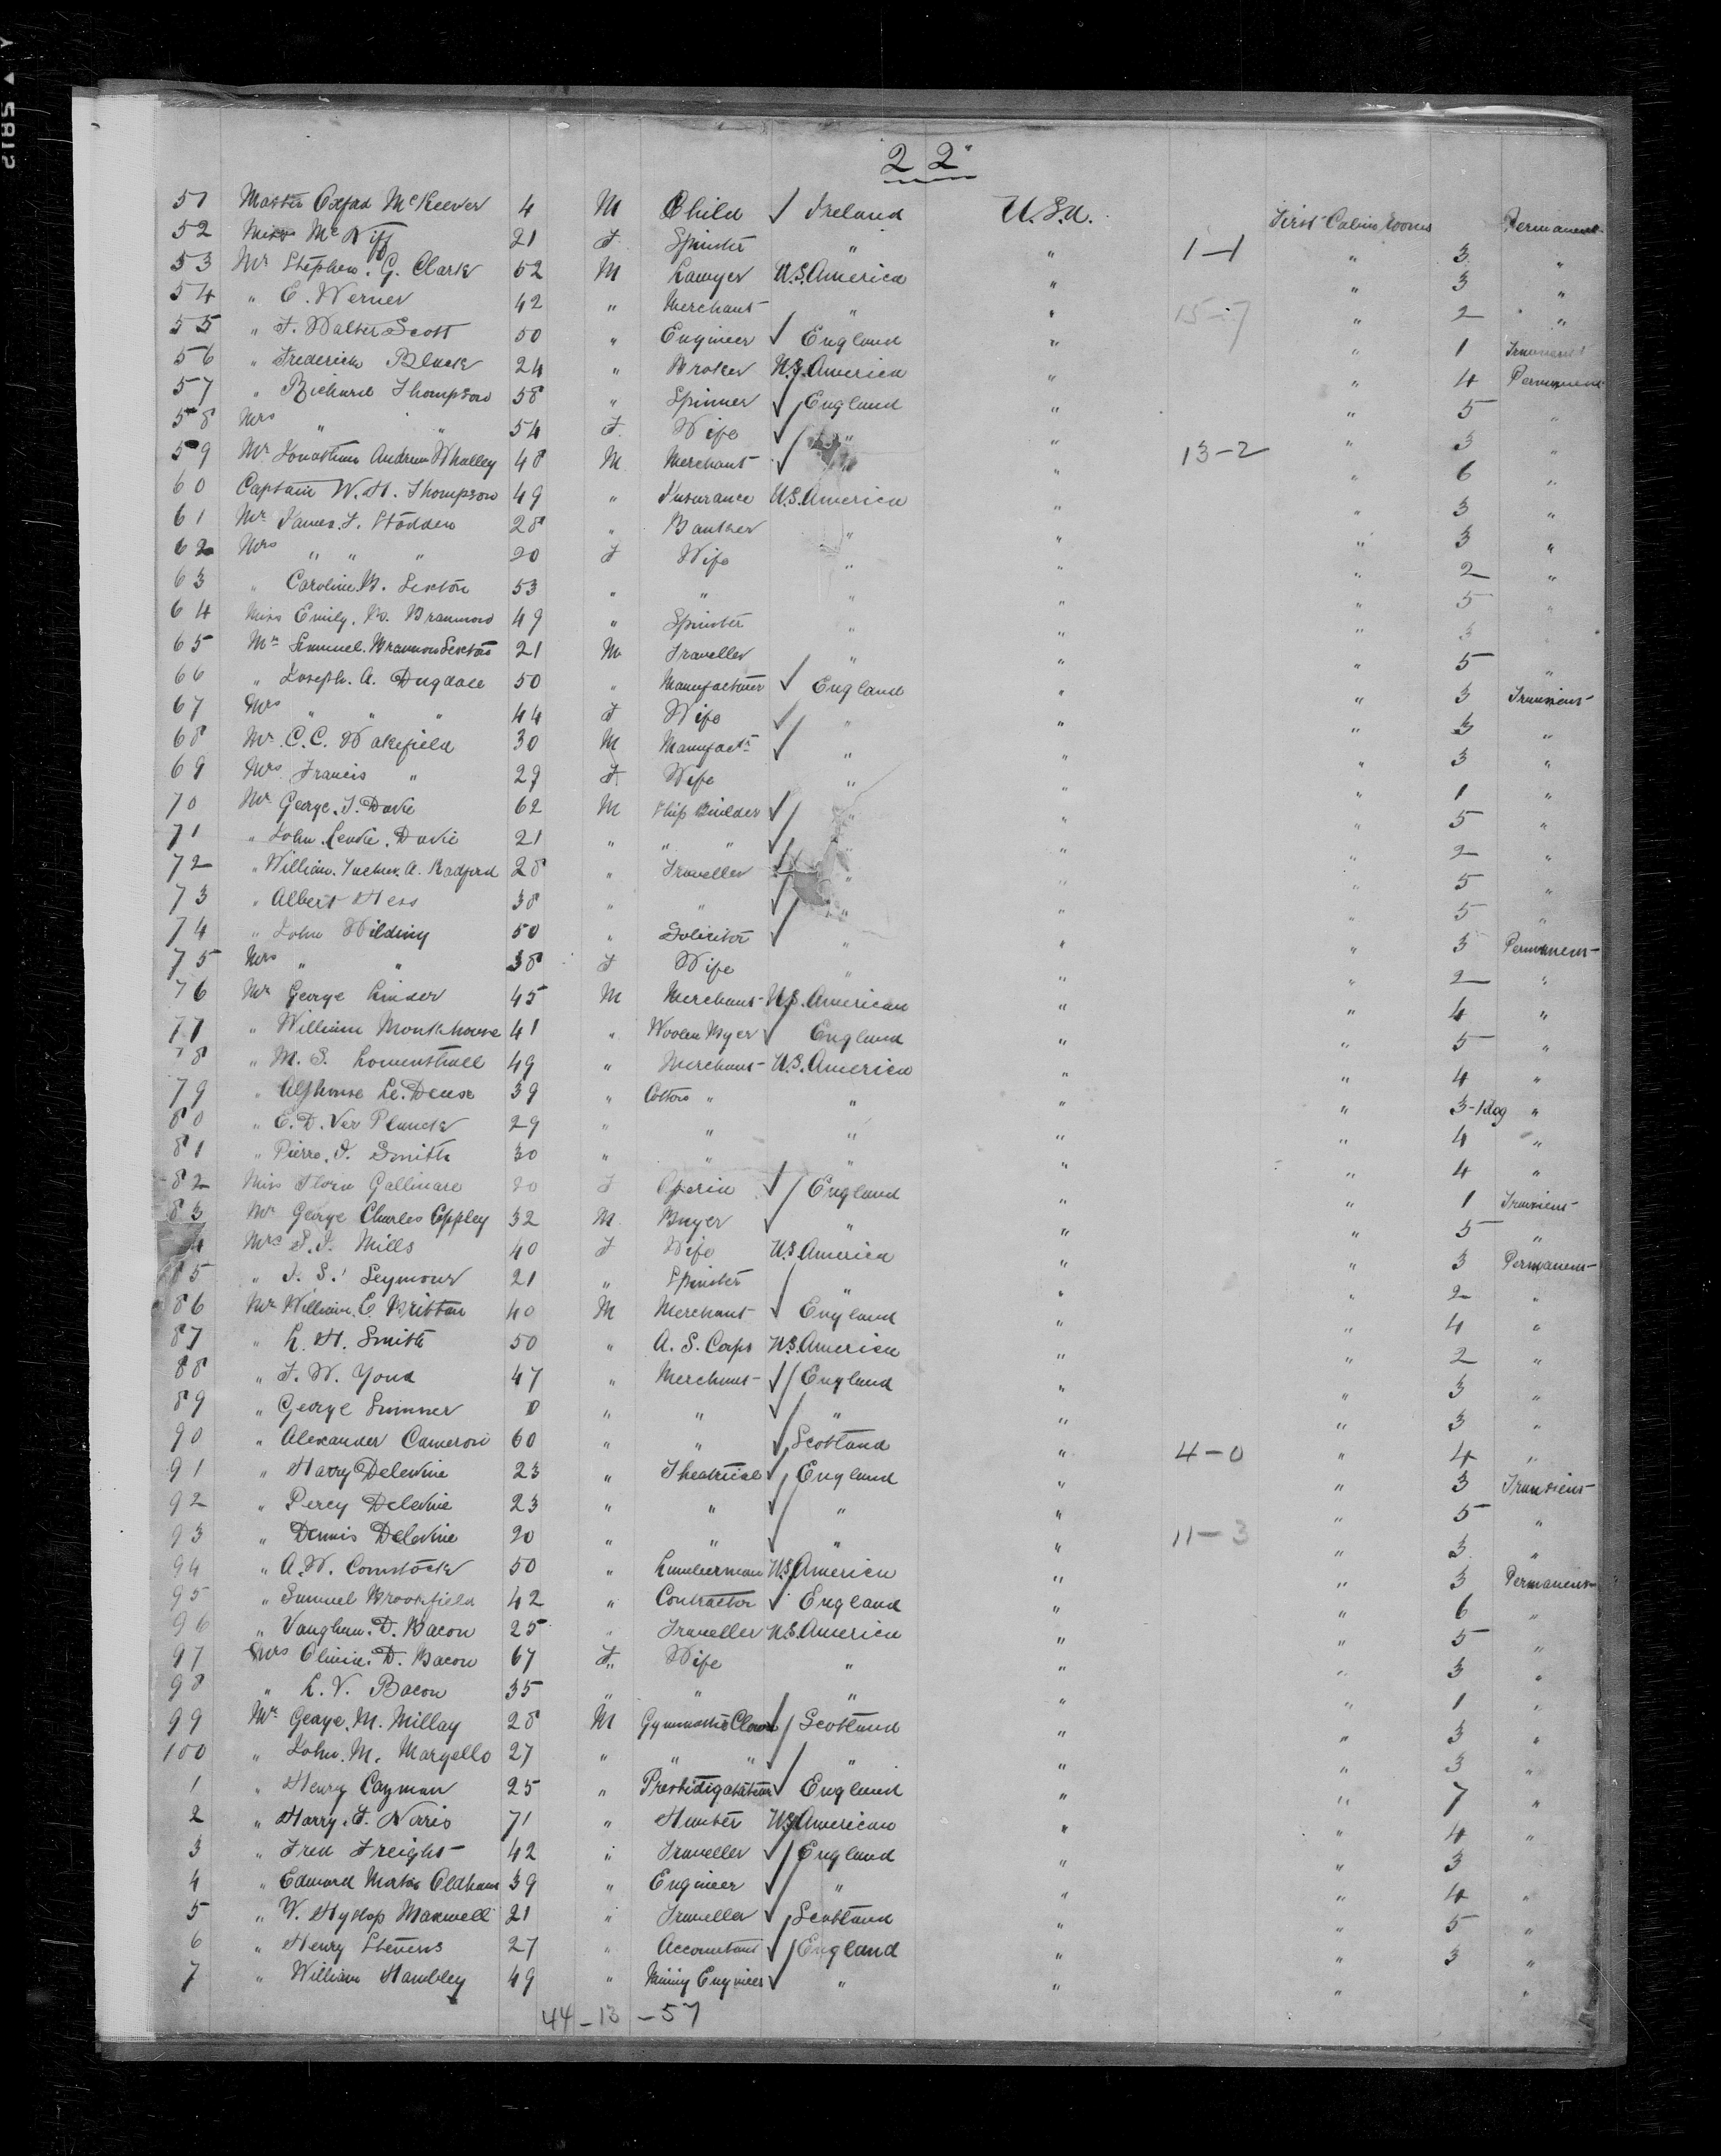 2 2"
51 Master Oxford McKeever 4 M Child ✓ Ireland U.S.A. First Cabin rooms Permanent
52 Miss McNiff 21 F Spinster " " 1-1 " 3 "
53 Mr Stephen. G. Clark 52 M Lawyer U.S. America " " 3 "
54 " E. Werner 42 " Merchant " " 15-7 " 2 "
55 " F. Walter Scott 50 " Engineer ✓ England " " 1 Transient
56 " Frederick Black 24 " Broker U.S. America " " 4 Permanent
57 " Richard Thompson 58 " Spinner ✓ England " " 5 "
58 Mrs " " 54 F Wife ✓ " " 13-2 " 3 "
59 Mr Jonathan Andrew Whalley 48 M Merchant ✓ " " " 6 "
60 Captain W. H. Thompson 49 " Insurance U.S. America " " 3 "
61 Mr James. F. Stodden 28 " Banker " " " 3 "
62 Mrs " " " 20 F Wife " " " 2 "
63 " Caroline B. Sexton 53 " " " " " 5 "
64 Miss Emily. 49 " Spinster " " "
65 Mr Lemuel. 21 M Traveller " " " 5 "
66 " Joseph. A. Dugdale 50 " Manufacturer ✓ England " " 3 Transient
67 Mrs " " " 44 F Wife ✓ " " " 3 "
68 Mr. C. C. Wakefield 30 M Manufactr ✓ " " " 3 "
69 Mrs Francis " 29 F Wife " " " 1 "
70 Mr George. T. Davie 62 M Ship Builder ✓ " " " 5 "
71 " John. Davie 21 " " " ✓ " " " 2 "
72 " William. A. Radford 28 " Traveller ✓ " " " 5 "
73 " Albert Hess 38 " " ✓ " " " 5 "
74 " John Wilding 50 " Solicitor ✓ " " " 3 Permanent
75 Mrs " " 38 F Wife " " " 2 "
76 Mr George Linder 45 M Merchant U.S. American " " 4 "
77 " William Monkhouse 41 " Woolen Byer ✓ England " " 5 "
78 " M. S. Lowensthall 49 " Merchant U.S. America " " 4 "
79 " Alphonse Le. 39 " Cotton " " " " 3-1 dog "
80 " E. D. Ver Planck 29 " " " " " 4 "
81 " Pierre. J. Smith 30 " " " " " 4 "
82 Miss Flora Gallimare 20 F ✓ England " " 1 Transient
83 Mr George Charles Eppley 32 M Buyer ✓ " " " 5 "
4 Mrs S. J. Mills 40 F Wife U.S. America " " 3 Permanent
85 " J. S. Seymour 21 " Spinster " " " 2 "
86 Mr William. C Brittan 40 M Merchant ✓ England " " 4 "
87 " L. H. Smith 50 " A. S. Corps U.S. America " " 2 "
88 " F. W. Yond 47 " Merchant ✓ England " " 3 "
89 " George Sumner 0 " " ✓ " " " 3 "
90 " Alexander Cameron 60 " " ✓ Scotland " 4-0 " 4 "
91 " Harry Delevine 23 " Theatrical ✓ England " " 3 Transient
92 " Percy Delevine 23 " " ✓ " " " 5 "
93 " Dennis Delevine 20 " " ✓ " " 11-3 " 3 "
94 " A. W. Comstock 50 " Lumberman U.S. America " " 3 Permanent
95 " Samuel Brookfield 42 " Contractor ✓ England " " 6 "
96 " Vaughan. D. Bacon 25 " Traveller U.S. America " " 5 "
97 Mrs Olivia. D. Bacon 67 F " Wife " " " 3 "
98 " L. V. Bacon 35 " " " " " 1 "
99 Mr George. M. Millay 28 M Gymnastic Clown ✓ Scotland " " 3 "
100 " John. M. Margello 27 " " " ✓ " " " 3 "
1 " Henry Cayman 25 " Prestidigatateur ✓ England " " 7 "
2 " Harry. F. Norris 71 " Hunter U.S. American " " 4 "
3 " Fred Freight 42 " Traveller ✓ England " " 3
4 " Edward Morton Oldham 39 " Engineer ✓ " " " 4 "
5 " W. Hyslop Maxwell 21 " Traveller ✓ Scotland " " 5 "
6 " Henry Stevens 27 " Accountant ✓ England " " 3 "
7 " William Hambley 49 " Mining Engineer ✓ " " " "
44-13-57